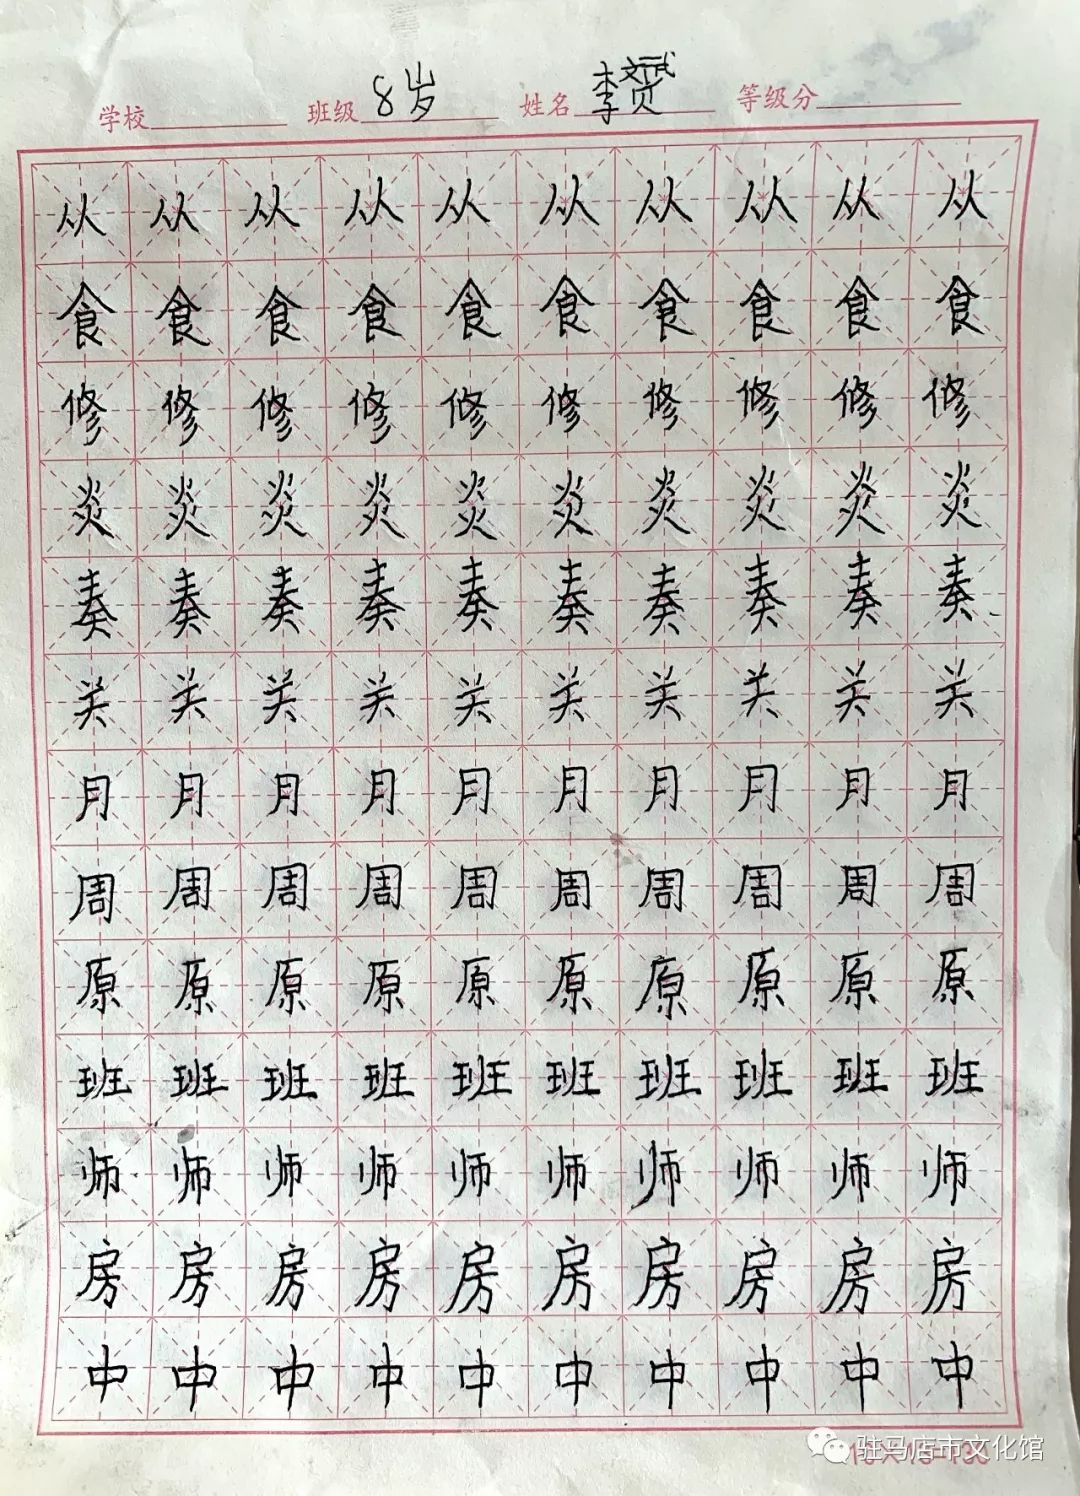 学校 班级 8岁 姓名 李赟 等级分
从从从从从从从从从从
食食食食食食食食食食
修修修修修修修修修修
炎炎炎炎炎炎炎炎炎炎
奏奏奏奏奏奏奏奏奏奏
关关关关关关关关关关
月月月月月月月月月月
周周周周周周周周周周
原原原原原原原原原原
班班班班班班班班班班
师师师师师师师师师师
房房房房房房房房房房
中中中中中中中中中中
驻马店市文化馆